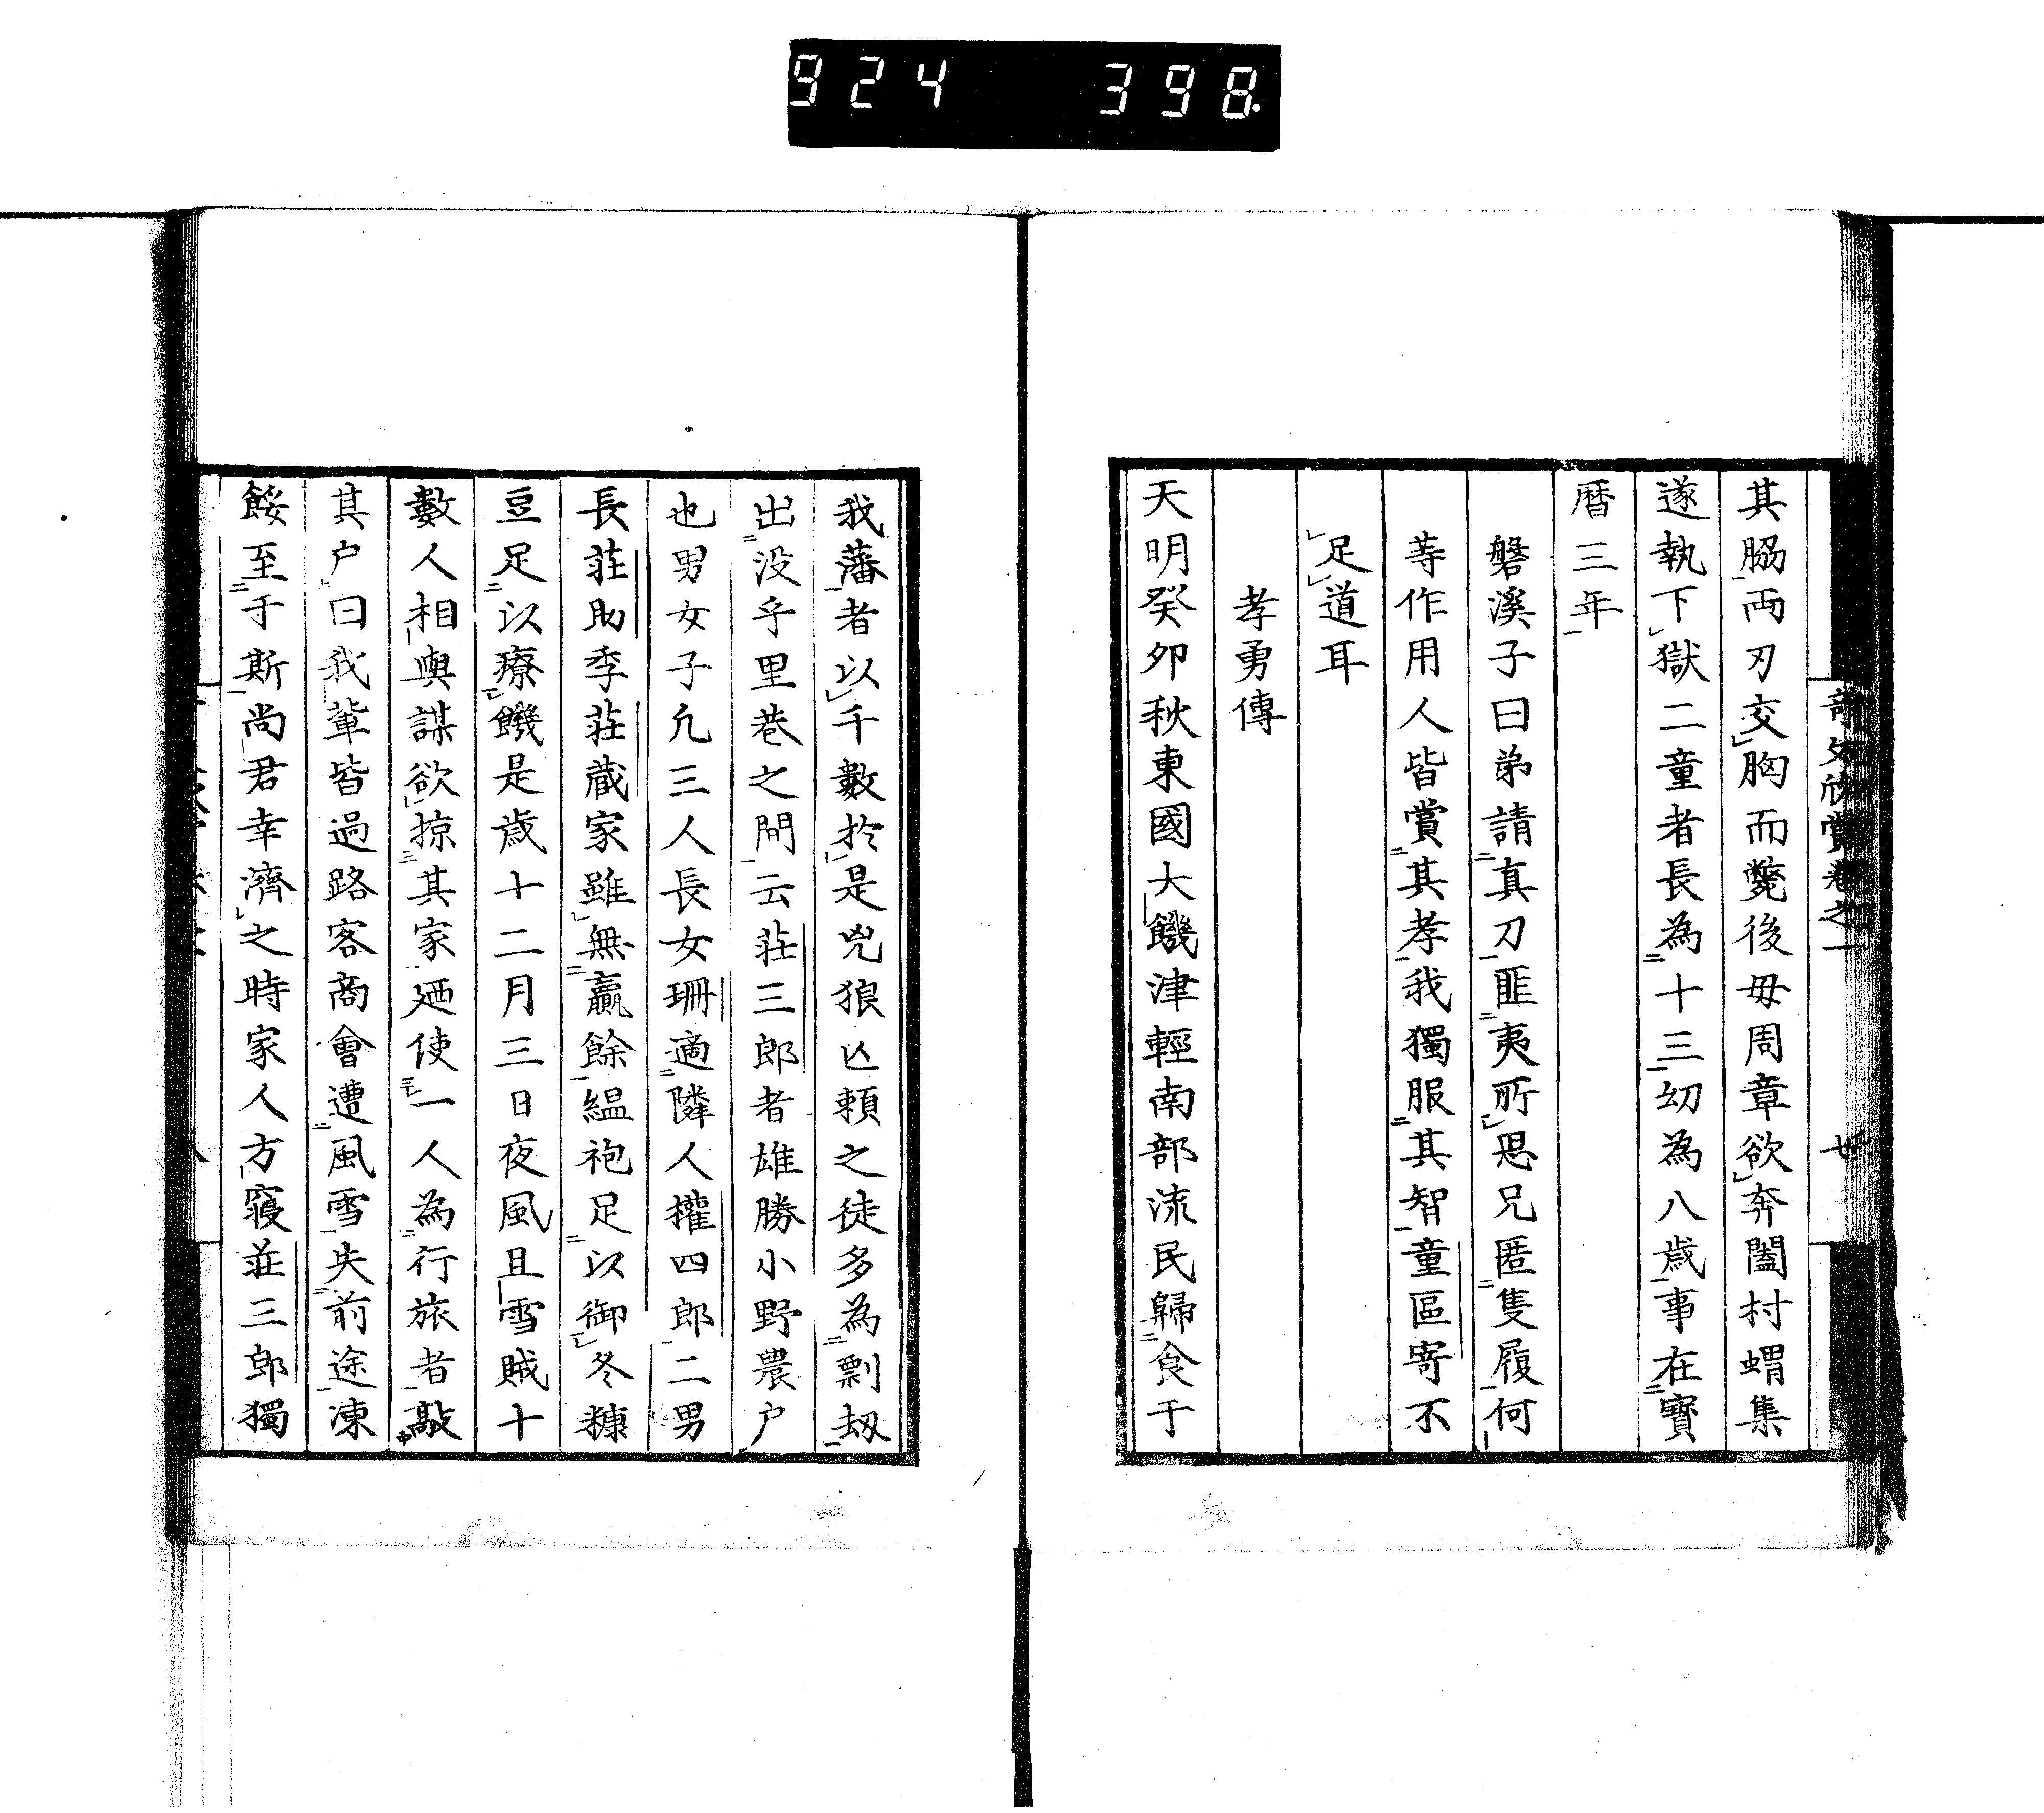 924 398
其脇両刃交胸而斃後毋周章欲奔闔村蝟集
遂執下獄二童者長為十三幼為八歳事在寳
暦三年
磐溪子曰弟請真刀匪夷所思兄匿隻履何
等作用人皆賞其孝我獨服其智童區寄不
足道耳
孝勇傳
天明癸卯秋東國大饑津輕南部流民歸食于
我藩者以千數於是兇狼亾頼之徒多為剽刼
出没乎里巷之間云荘三郎者雄勝小野農户
也男女子凢三人長女珊適隣人權四郎二男
長荘助季荘蔵家雖無贏餘緼袍足以御冬糠
豆足以療饑是歳十二月三日夜風且雪賊十
數人相與謀欲掠其家廼使一人為行旅者敲
其户曰我輩皆過路客商會遭風雪失前途凍
餒至于斯尚君幸濟之時家人方寢荘三郎獨